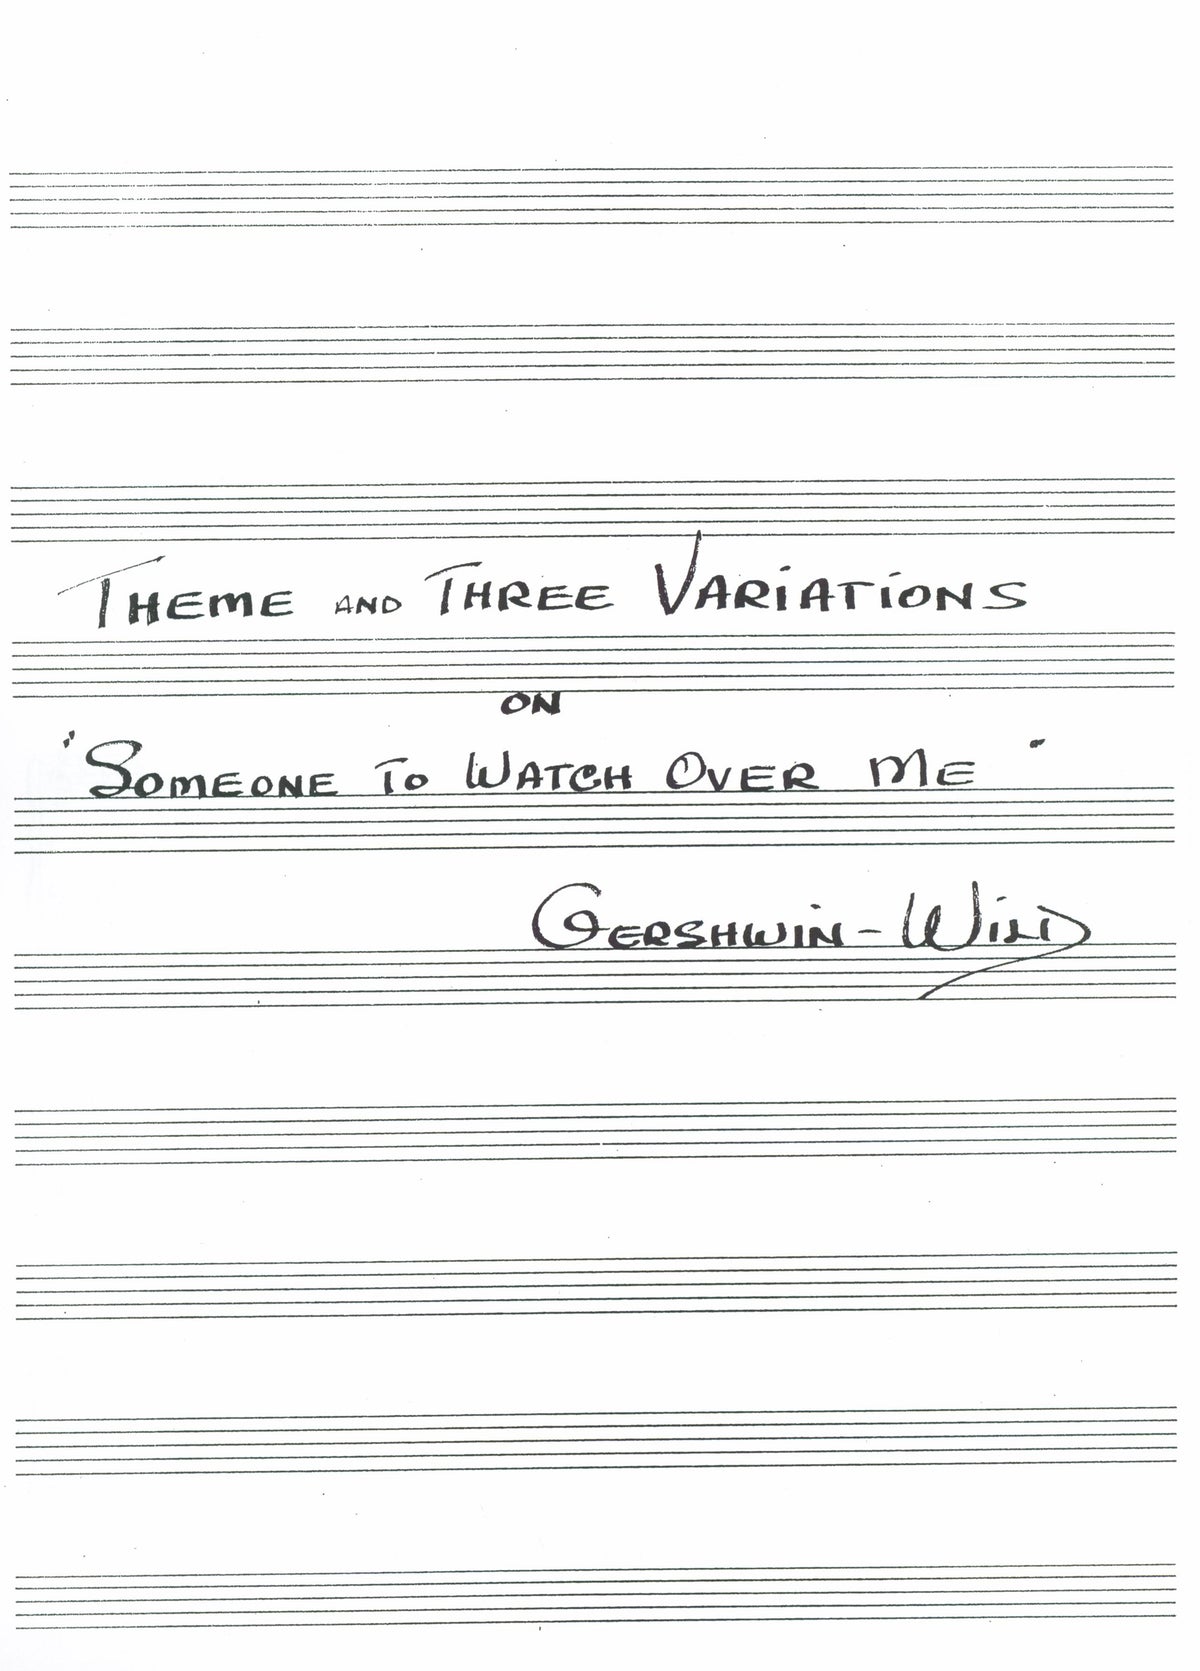 THEME AND THREE VARIATIONS
ON
"SOMEONE TO WATCH OVER ME"
GERSHWIN-WILD